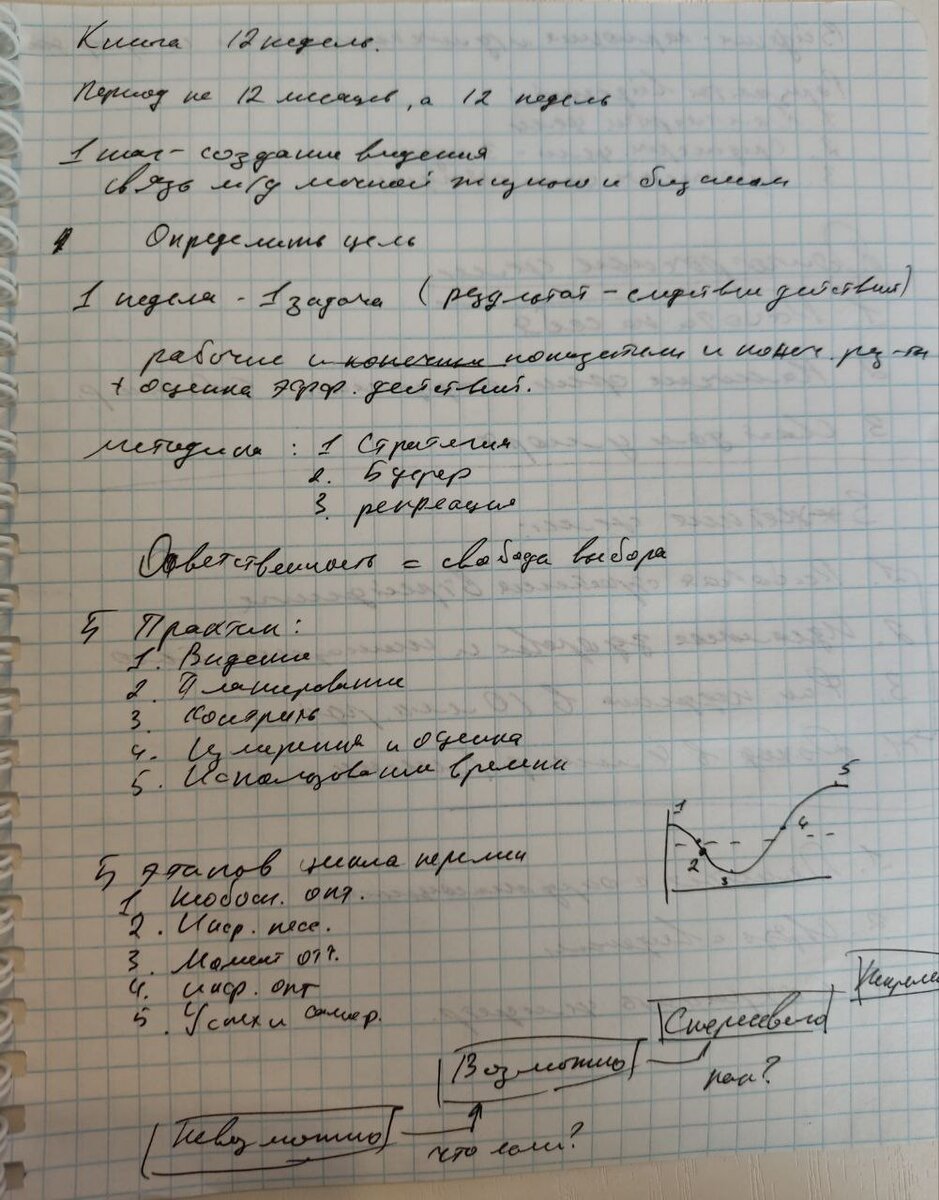 Книга 12 недель.
Период не 12 месяцев, а 12 недель
1 шаг - создание видения
связь м/д личной жизнью и бизнесом
Определить цель
1 неделя - 1 задача (результат - следствие действий)
рабочие и конечные показатели и конеч. рез-ты
+ оценка эфф. действий.
методика : 1 Стратегия
2. Буфер
3. рекреация
Ответственность = свобода выбора
5 Практик:
1. Видение
2. Планирование
3. Контроль
4. Измерения и оценка
5. Использование времени
1
5
4
2
3
5 этапов цикла перемен
1 Необосн. опт.
2. Инф. песс.
3. Момент отч.
4. инф. опт
5. Успех и
Вероятно
Возможно
как?
Невозможно
что если?